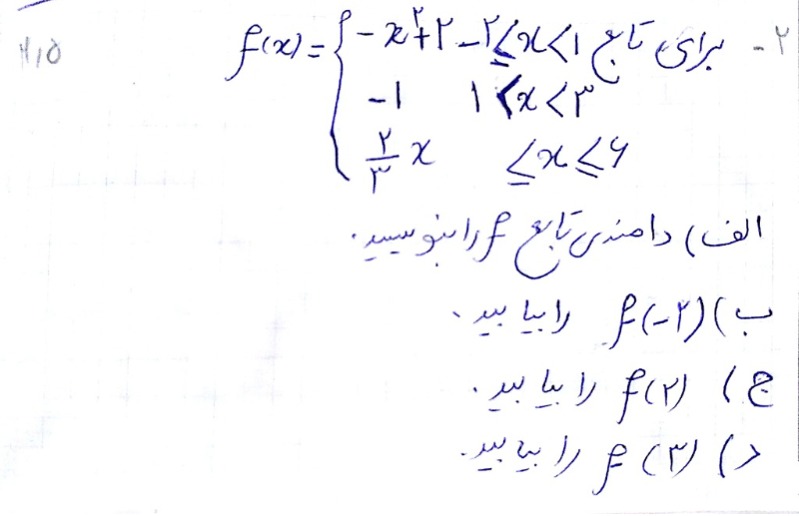 ۲- برای تابع f(x) = { -x²+۲ -۲≤x<۱
-۱ ۱<x<۳
۲/۳ x ≤x≤۶
الف) دامنه‌ی تابع f را بنویسید.
ب) f(-۲) را بیابید.
ج) f(۲) را بیابید.
د) f(۳) را بیابید.